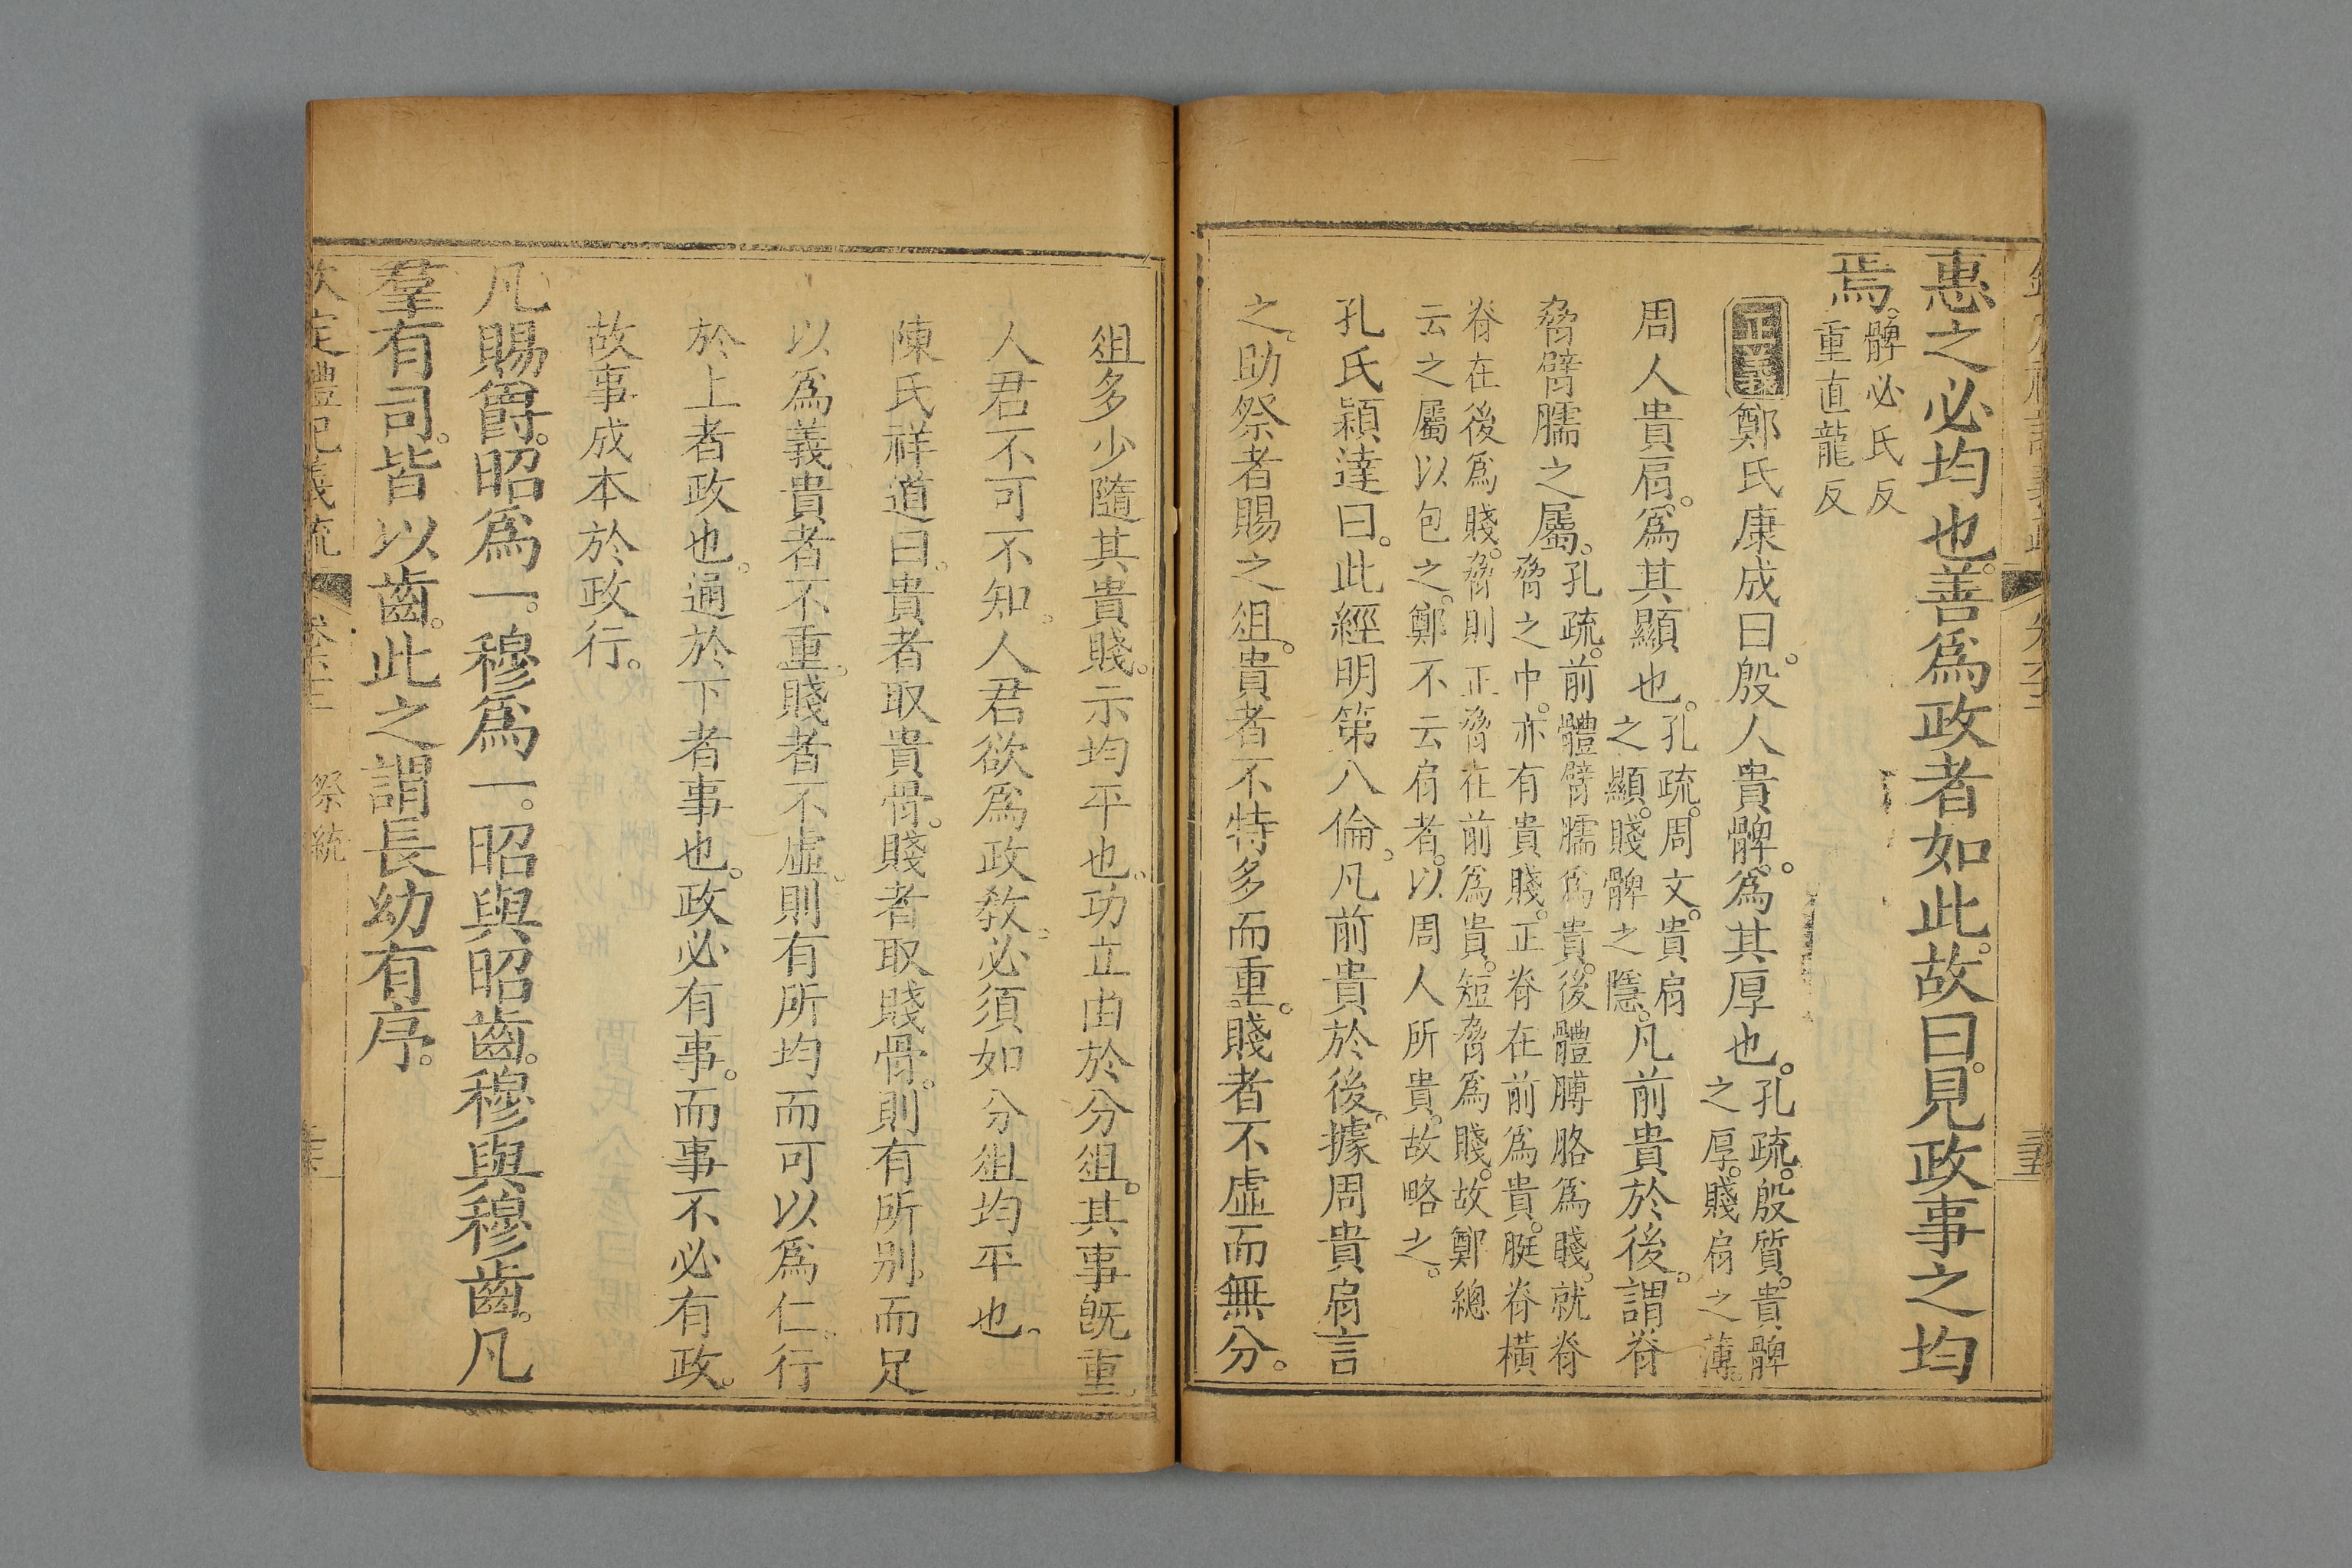 惠之必均也。善爲政者如此。故曰。見政事之均
焉。髀必氏反
重直龍反
正義鄭氏康成曰。殷人貴髀。爲其厚也。孔疏。殷質。貴髀
之厚。賤肩之薄。
周人貴肩。爲其顯也。孔疏。周文。貴肩
之顯。賤髀之隱。凡前貴於後。謂脊
脅臂臑之屬。孔疏。前體臂臑爲貴。後體膊胳爲賤。就脊
脅之中。亦有貴賤。正脊在前爲貴。脡脊橫
脊在後爲賤。脅則正脅在前爲貴。短脅爲賤。故鄭總
云之屬以包之。鄭不云肩者。以周人所貴。故略之。
孔氏穎達曰。此經明第八倫。凡前貴於後。據周貴肩言
之。助祭者賜之俎。貴者不特多而重。賤者不虛而無分。
俎多少隨其貴賤。示均平也。功立由於分俎。其事旣重。
人君不可不知。人君欲爲政敎。必須如分俎均平也。
陳氏祥道曰。貴者取貴骨。賤者取賤骨。則有所别。而足
以爲義貴者不重。賤者不虛。則有所均而可以爲仁。行
於上者政也。通於下者事也。政必有事。而事不必有政。
故事成本於政行。
凡賜爵。昭爲一。穆爲一。昭與昭齒。穆與穆齒。凡
羣有司。皆以齒。此之謂長幼有序。
欽定禮記義疏
祭統